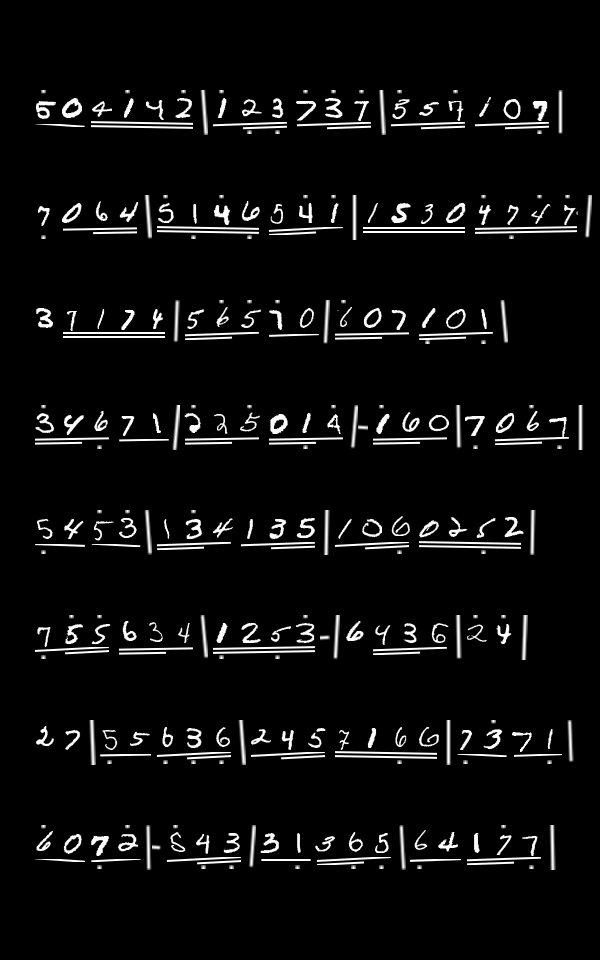 504142|123737|557107|
7064|5146541|15304747|
37174|56570|607101|
34671|225014|-160|7067|
5453|134135|1060252|
755634|1253-|6436|24|
27|55636|2457166|7371|
6072|-543|31365|64177|